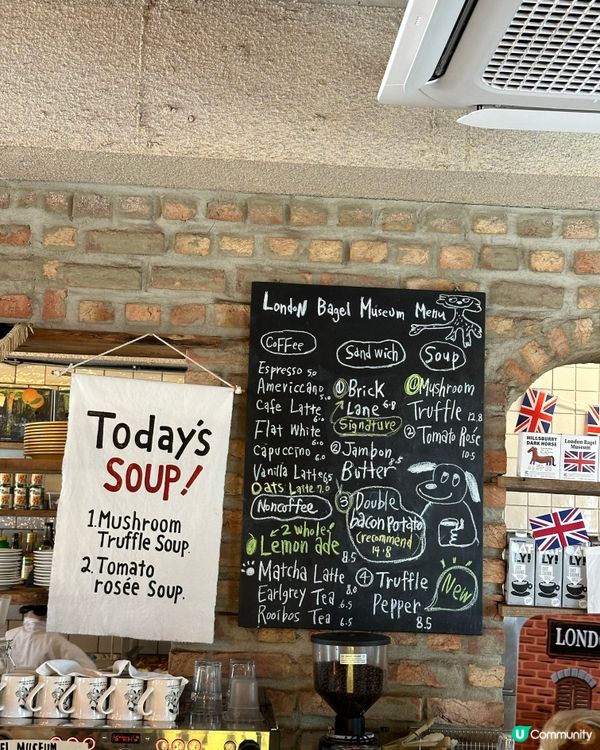 London Bagel Museum Menu
Coffee
Espresso 5.0
Americcano 5.0
Cafe Latte 6.0
Flat White 6.0
Capuccino 6.0
Vanilla Latte 6.5
Oats Latte 7.0
Noncoffee
2 whole!
Lemon ade 8.5
Matcha Latte
Earlgrey Tea 6.5
Rooibos Tea 6.5
Sandwich
① Brick
Lane 6.8
Signature
② Jambon
Butter 8.5
③ Double
bacon Potato
(recommend
14.8
④ Truffle
Pepper 8.5
New
Soup
① Mushroom
Truffle 12.8
② Tomato Rose
10.5
Today's
SOUP!
1. Mushroom
Truffle Soup.
2. Tomato
rosée Soup.
MILLSBURY
DARK HORSE
London Bagel
Museum
LY!
LY!
LOND
EL MUSEUM
U Community